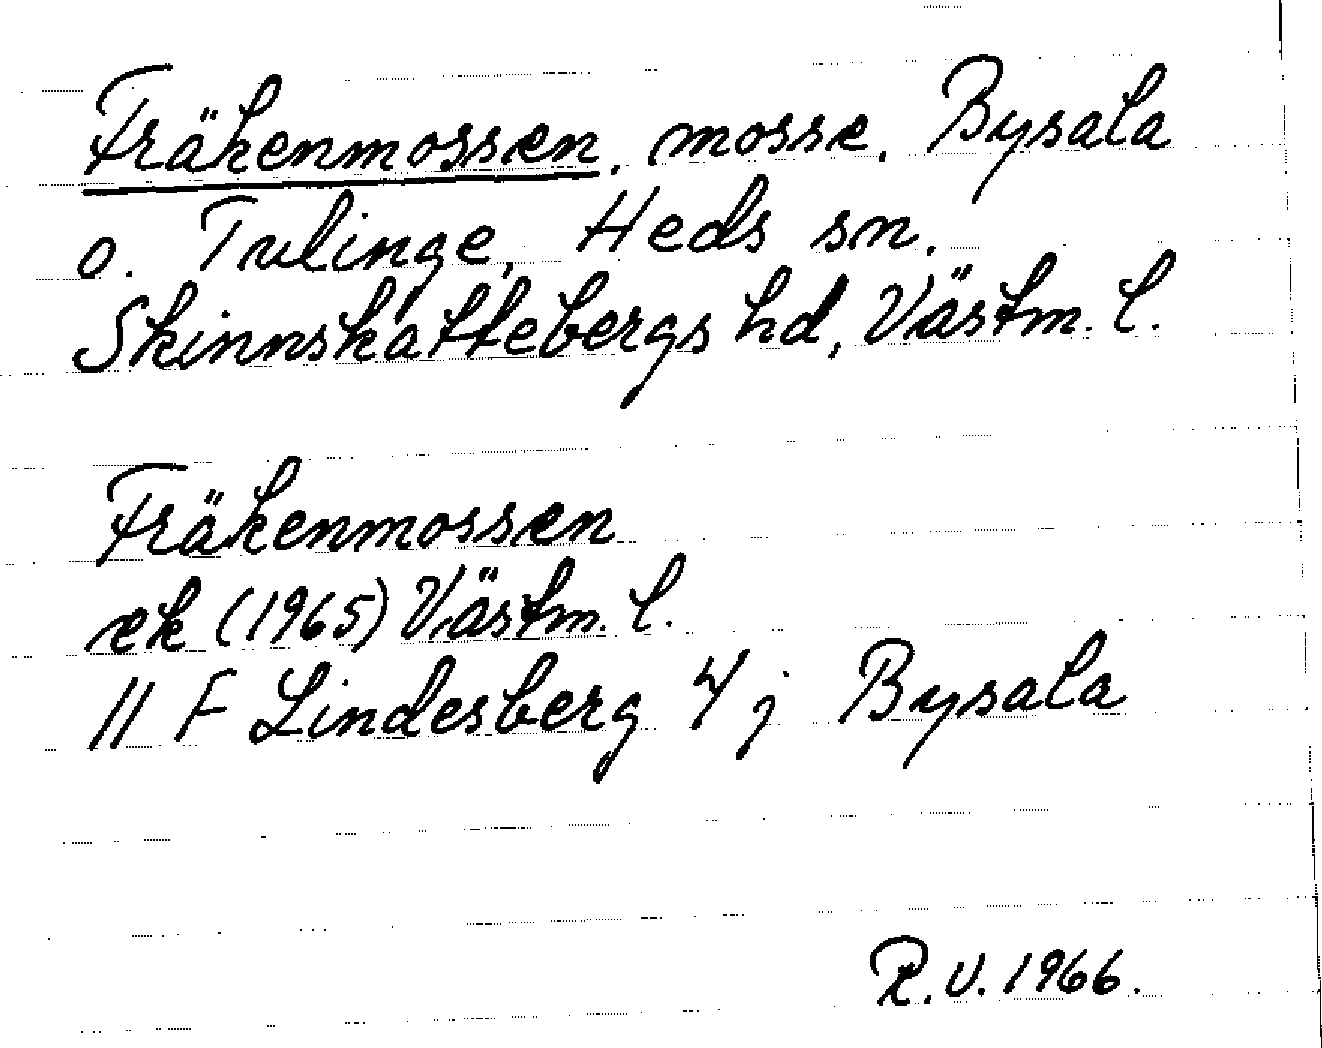 Fräkenmossen, mosse, Bysala
o. Tvlinge, Heds sn.
Skinnskattebergs hd, Västm. l.
Fräkenmossen
ek (1965) Västm. l.
11 F Lindesberg 4 j Bysala
R.V. 1966.